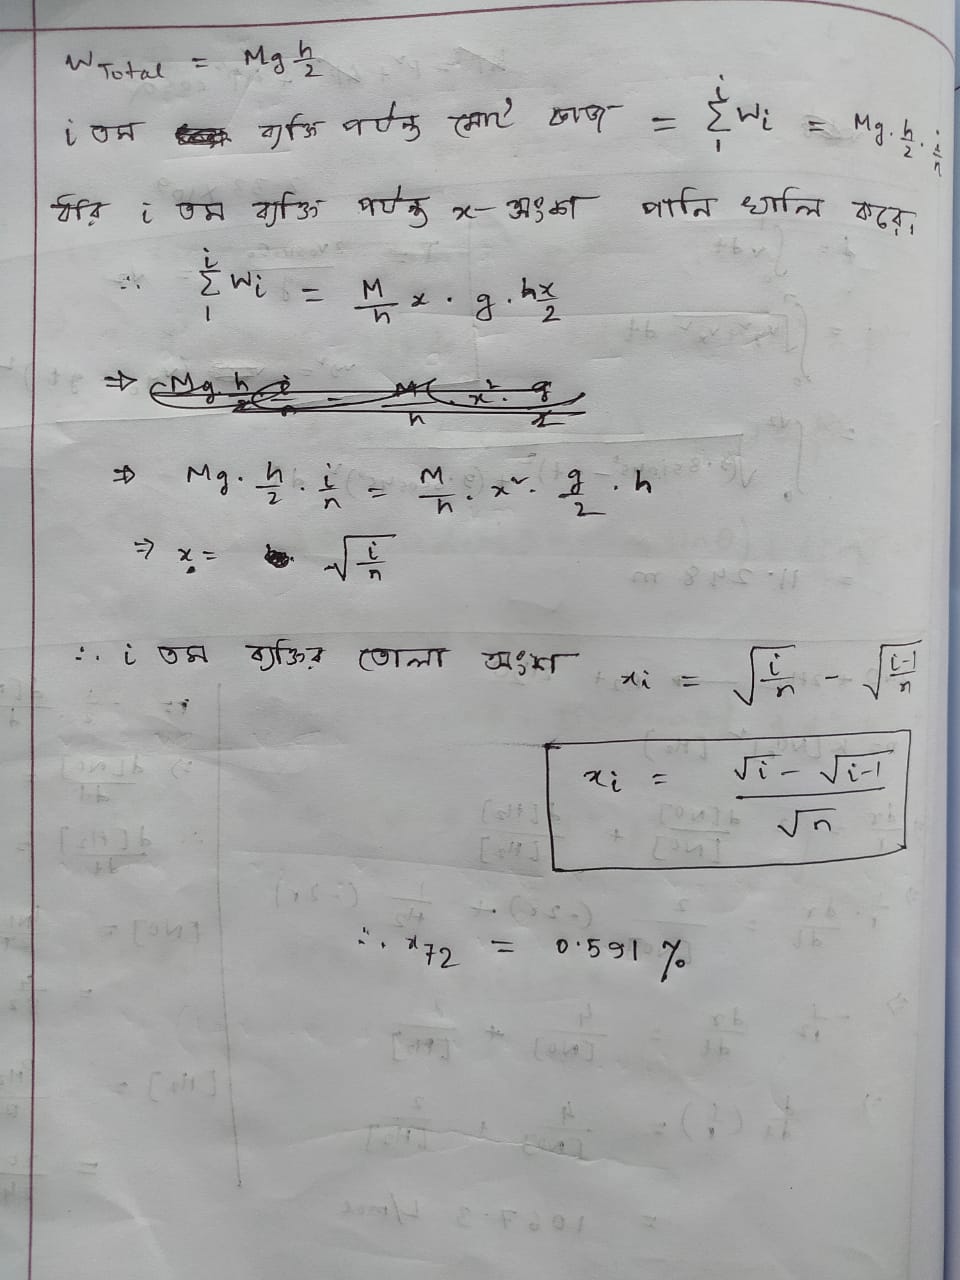 W Total = Mg h/2
i তম ব্যক্তি পর্যন্ত মোট কাজ = Σ₁ⁱ Wi = Mg. h/2 . i/n
ধরি i তম ব্যক্তি পর্যন্ত x- অংশ পানি খালি করে।
∴ Σ₁ⁱ Wi = M/n x . g . hx/2
⇒ Mg. h/2 . i/n = M/n . x² . g/2 . h
⇒ x = √(i/n)
∴ i তম ব্যক্তির তোলা অংশ xi = √(i/n) - √((i-1)/n)
xi = (√i - √(i-1))/√n
∴ x72 = 0.591 %